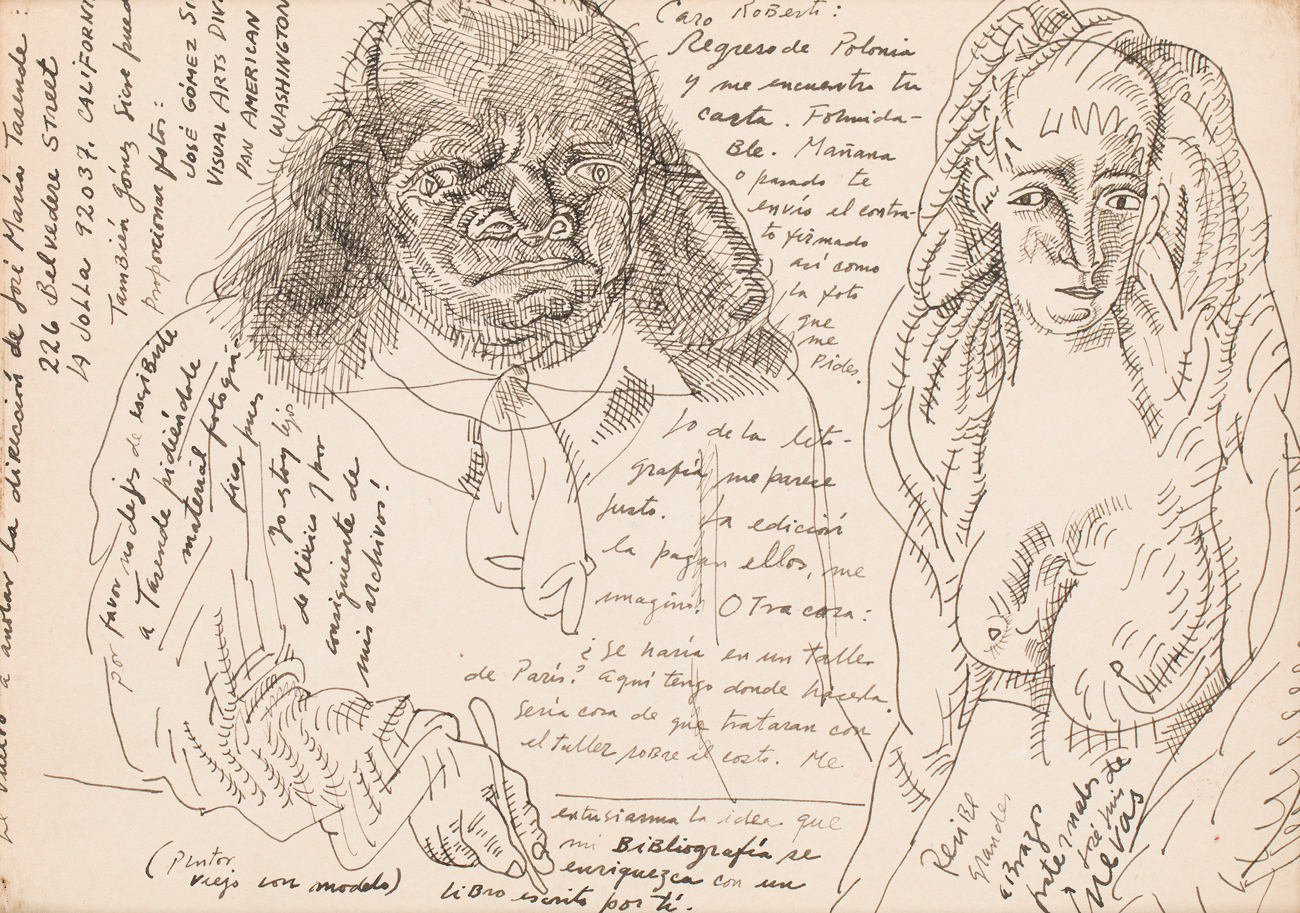 Caro Roberti:
Regreso de Polonia
y me encuentro tu
carta. Formida-
Ble. Mañana
o pasado te
envío el contra-
to firmado
así como
la foto
que
me
Pides.
Lo de la lito-
grafía me parece
justo. La edición
la pagan ellos, me
imagino. Otra cosa:
¿Se haría en un taller
de París? Aquí tengo donde hacerla.
Sería cosa de que trataran con
el taller sobre el costo. Me
entusiasma la idea que
mi BiBliografía se
enriquezca con un
liBro escrito por tí.
ReciBe
grandes
aBrazos
fraternales de
José Luis
nevas
(Pintor
viejo con modelo)
Por favor no dejes de escribirle
a Tasende pidiéndole
material fotográ-
fico pues
yo estoy lejos
de México y por
consiguiente de
mis archivos!
vuelvo a anotar la dirección de José María Tasende:
226 Belvedere Street
La Jolla 92037. CALIFORNI
También Gómez Sicre pued
Proporcionar fotos:
José GÓMEZ Si
VISUAL ARTS DIV
PAN AMERICAN
WASHINGTON